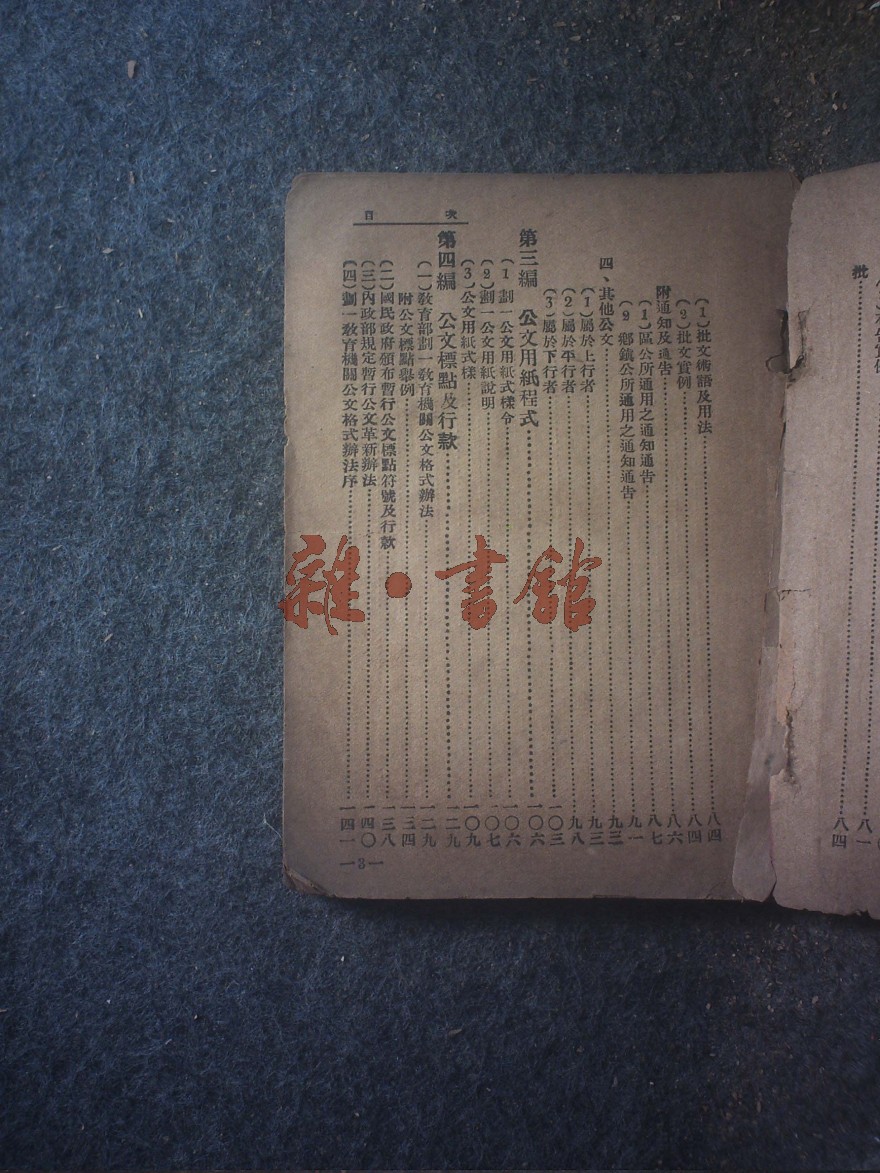 批……八四
目次
(1)批文術語及用法……八四
(2)批文實例……八四
附通知及通告……八六
(1)區公所通用之通知通告……八七
(2)鄉鎮公所通用之通知通告……九一
四、其他公文……九三
(1)屬於上行者……九三
(2)屬於平行者……九八
(3)屬於下行者……一〇三
第三編 公文用紙程式……一〇六
(1)劃一公文用紙式樣令……一〇六
(2)劃一公文用紙說明……一〇七
(3)公文用紙式樣……一〇九
第四編 公文標點及行款……一二九
(一)教育部劃一教育機關公文格式辦法……一二九
附公文標點舉例……一三四
(二)國民政府頒布暫行公文標點符號及行款……一三八
(三)內政部規定暫行公文革新辦法……一四〇
(四)劃一教育機關公文格式辦法序……一四一
—3—
雜·書館